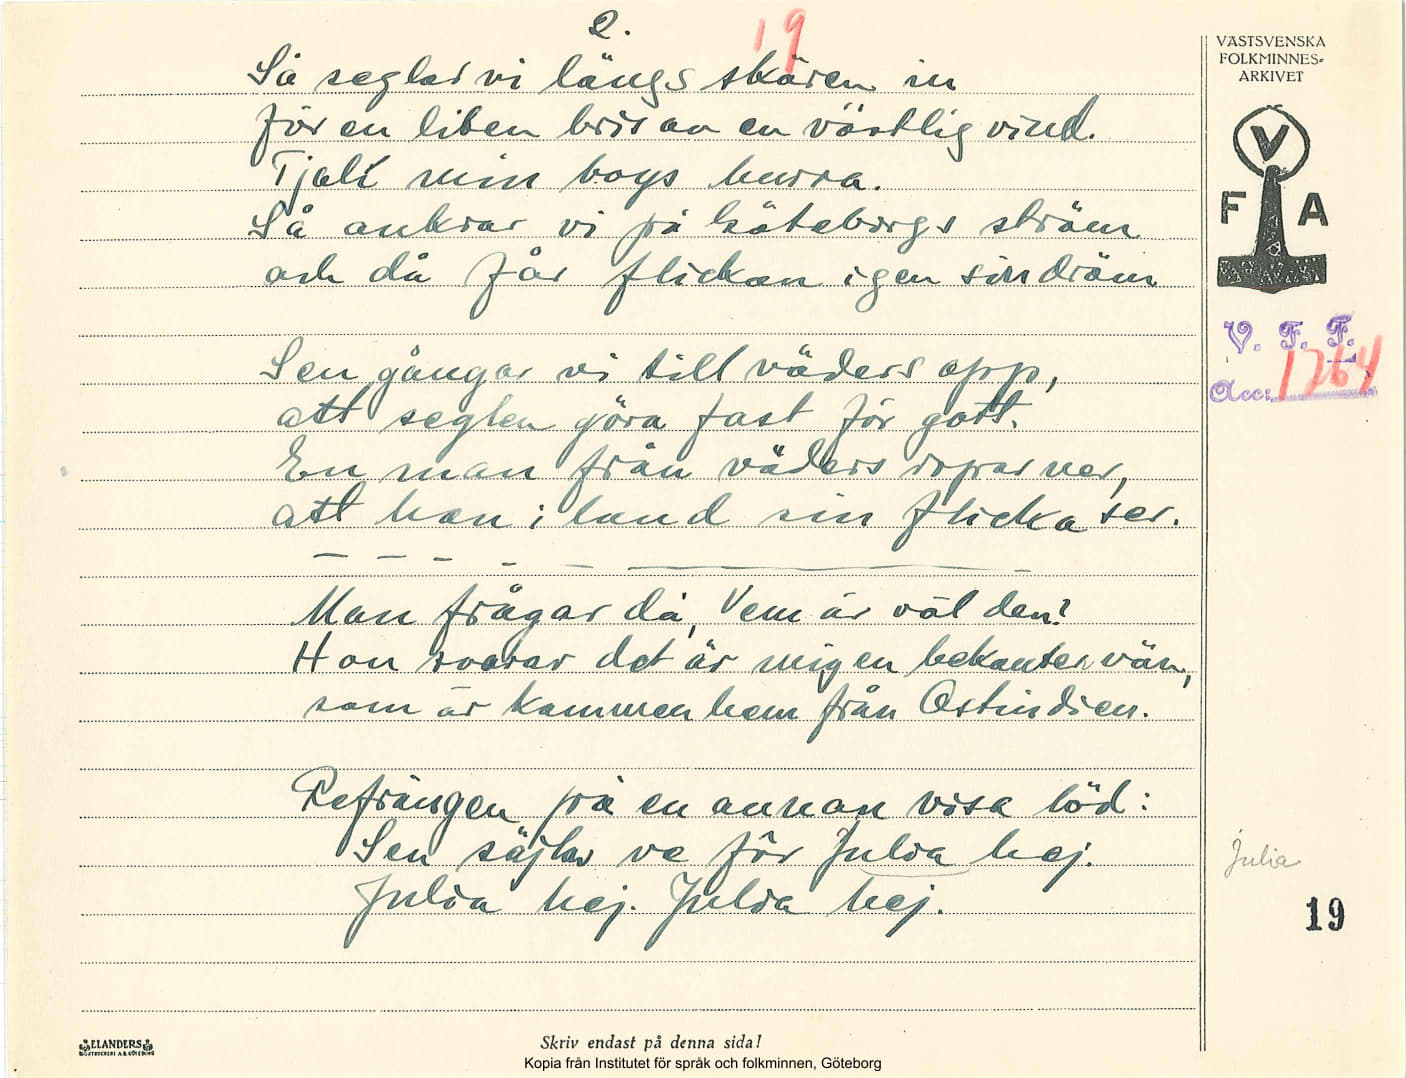 2.
19
Så seglar vi längs skären in
för en liten bris av en västlig vind.
Tjali min boys hurra.
Så ankrar vi på Göteborgs ström
och då får flickan igen sin dröm
Sen gångar vi till väders opp,
att seglen göra fast för gott.
En man från väders ropar ner,
att han i land sin flicka ser.
Man frågar då, Vem är väl den?
Hon svarar det är mig en bekanter vän,
som är kommen hem från Ostindien.
Refrängen på en annan visa löd:
Sen säjlar ve för Julia hej.
Julia hej. Julia hej.
VÄSTSVENSKA
FOLKMINNES=
ARKIVET
V
F A
V. F. F.
Acc: 1264
Julia
19
ELANDERS
BOKTRYCKERI A.B. GÖTEBORG
Skriv endast på denna sida!
Kopia från Institutet för språk och folkminnen, Göteborg